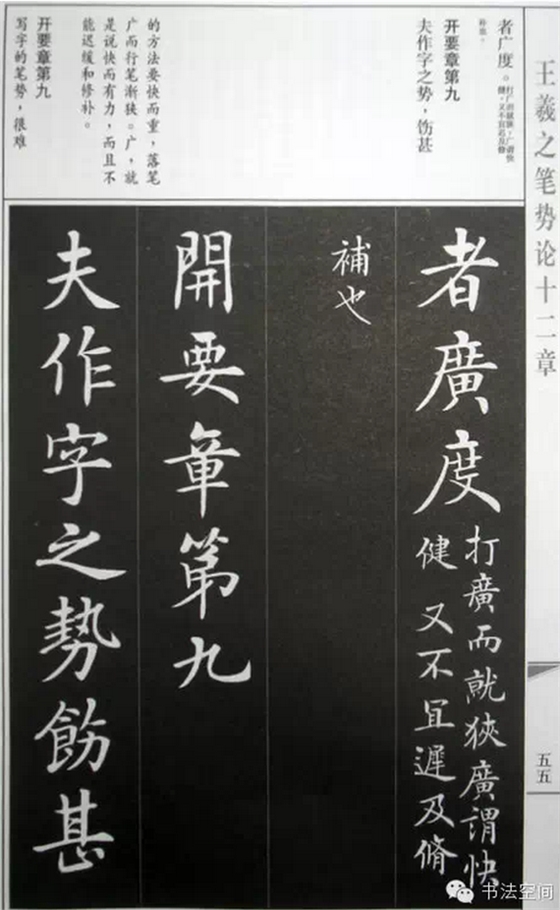 王羲之笔势论十二章
五五
者广度。打广而就狭，广谓快
健，又不宜迟及修
补也。
开要章第九
夫作字之势，饬甚
的方法要快而重，落笔
广而行笔渐狭。广，就
是说快而有力，而且不
能迟缓和修补。
开要章第九
写字的笔势，很难
者廣度打廣而就狹廣謂快
健又不宜遲及脩
補也
開要章第九
夫作字之勢飭甚
书法空间